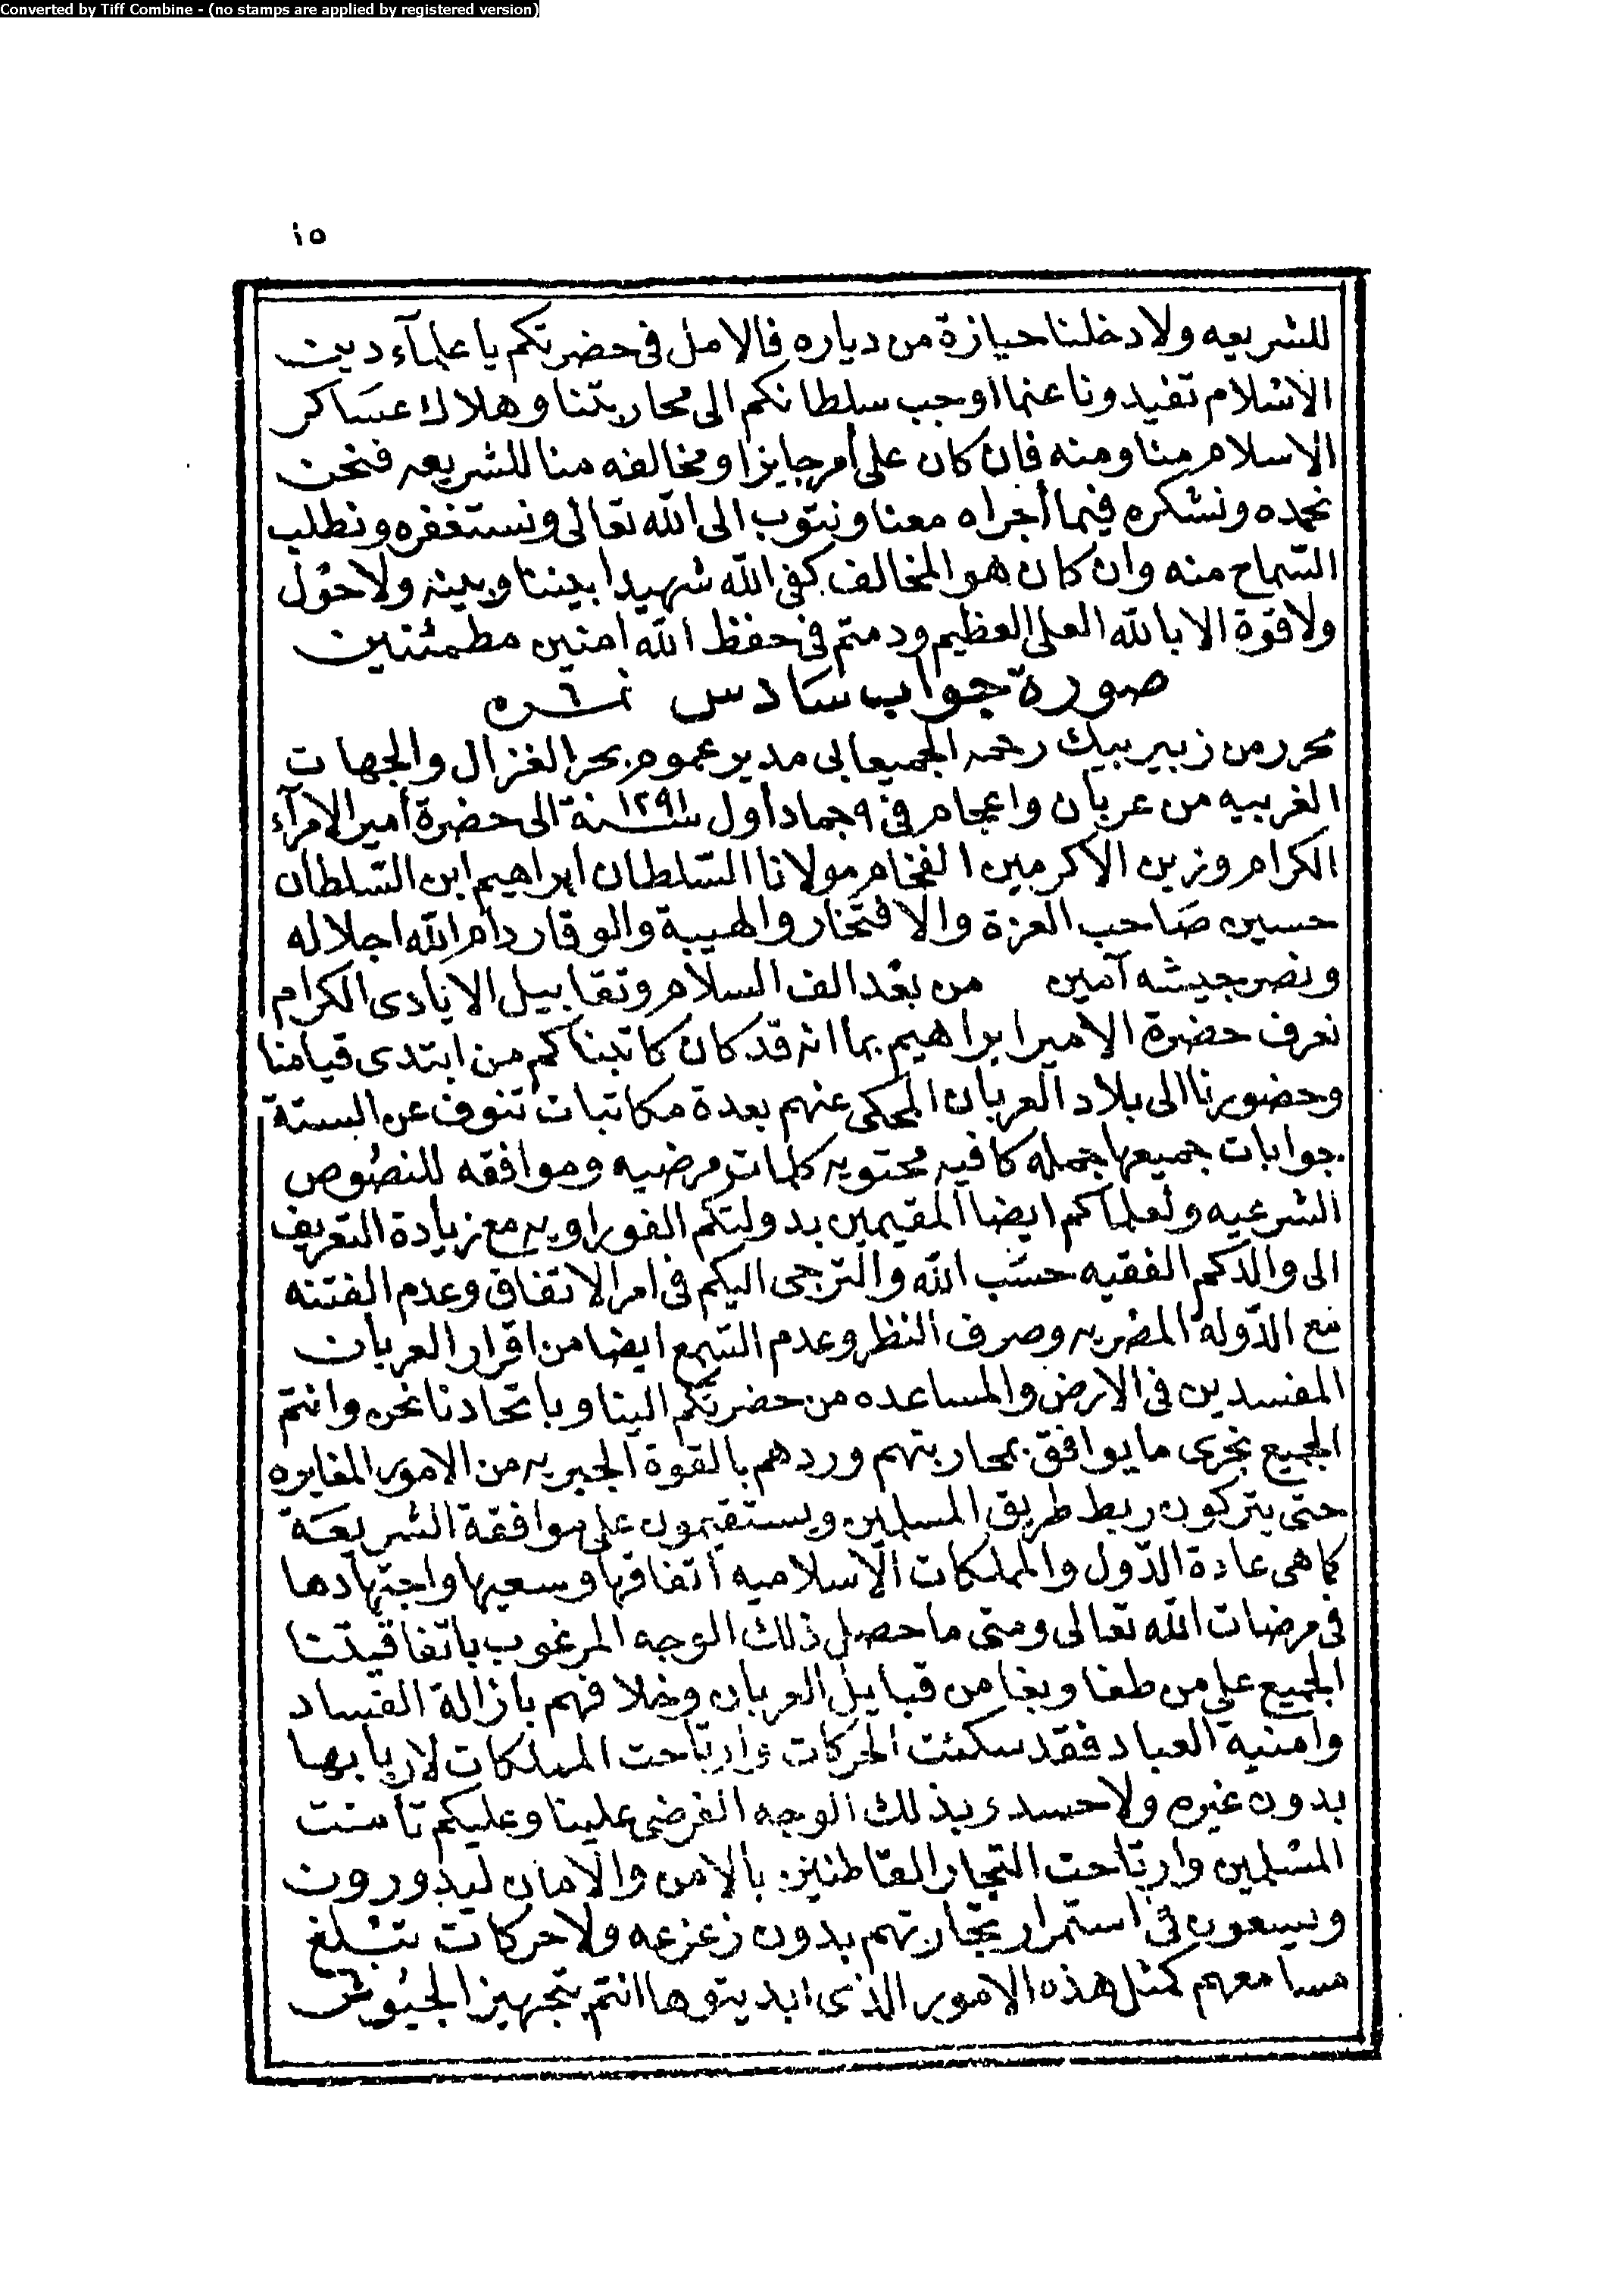 Converted by Tiff Combine - (no stamps are applied by registered version)
١٥
للشريعه ولا دخلنا حيازة من دياره فالامل فى حضرتكم يا علمآء دين
الاسلام تفيدونا عنما اوجب سلطانكم الى محاربتنا وهلاك عساكر
الاسلام منا ومنه فان كان على أمر جايزا ومخالفه منا للشريعه فنحن
نحمده ونشكره فيما أجراه معنا ونتوب الى الله تعالى ونستغفره ونطلب
السّماح منه وان كان هو المخالف كفى الله شهيدا بيننا وبينه ولا حول
ولا قوة الا بالله العلى العظيم ودمتم فى حفظ الله امنين مطمئنين
صورة جواب سادس نمره ٦
محرر من زبير بيك رحمه الجميعابى مدير عموم بحر الغزال والجهات
الغربيه من عربان واعجام فى ٩ جماد أول سنة ١٢٩١ الى حضرة أمير الامرآء
الكرام وزين الاكرمين الفخام مولانا السّلطان ابراهيم ابن السّلطان
حسين صاحب العزة والافتخار والهيبة والوقار دام الله اجلاله
ونصر جيشه آمين من بعد الف السلام وتقابيل الايادى الكرام
نعرف حضرة الامير ابراهيم بما انه قد كان كاتبناكم من ابتدى قيامنا
وحضورنا الى بلاد العربان المحكى عنهم بعدة مكاتبات تنوف عن الستة
جوابات جميعها جمله كافيه محتويه كلمات مرضيه وموافقه للنصوص
الشرعيه ولعلماكم ايضا المقيمين بدولتكم الفوراويه مع زيادة التعريف
الى والدكم الفقيه حسب الله والترجى اليكم فى امر الاتفاق وعدم الفتنه
مع الدّولة المصريه وصرف النظر وعدم السّمع ايضا من اقرار العربان
المفسدين فى الارض والمساعده من حضرتكم الينا وباتحادنا نحن وانتم
الجميع نجرى ما يوافق بمحاربتهم وردهم بالقوة الجبريه من الامور المغايره
حتى يتركون ربط طريق المسلمين ويستقيمون على موافقة الشريعة
كما هى عادة الدّول والمملكات الاسلاميه اتفاقها وسعيها واجتهادها
فى مرضات الله تعالى ومتى ما حصل ذلك الوجه المرغوب باتفاقيتنا
الجميع على من طغا وبغا من قبايل العربان وخلافهم بازالة الفساد
وامنية العباد فقد سكنت الحركات وارتاحت المملكات لاربابها
بدون غيره ولا حسد وبذلك الوجه الفرضى علينا وعليكم تأمنت
المسلمين وارتاحت التجار القاطنين بالامن والامان ليدورون
ويسعون فى استمرار تجارتهم بدون زعزعه ولا حركات تبلغ
مسامعهم كمثل هذه الامور الذى ابديتوها انتم بتجهيز الجيوش